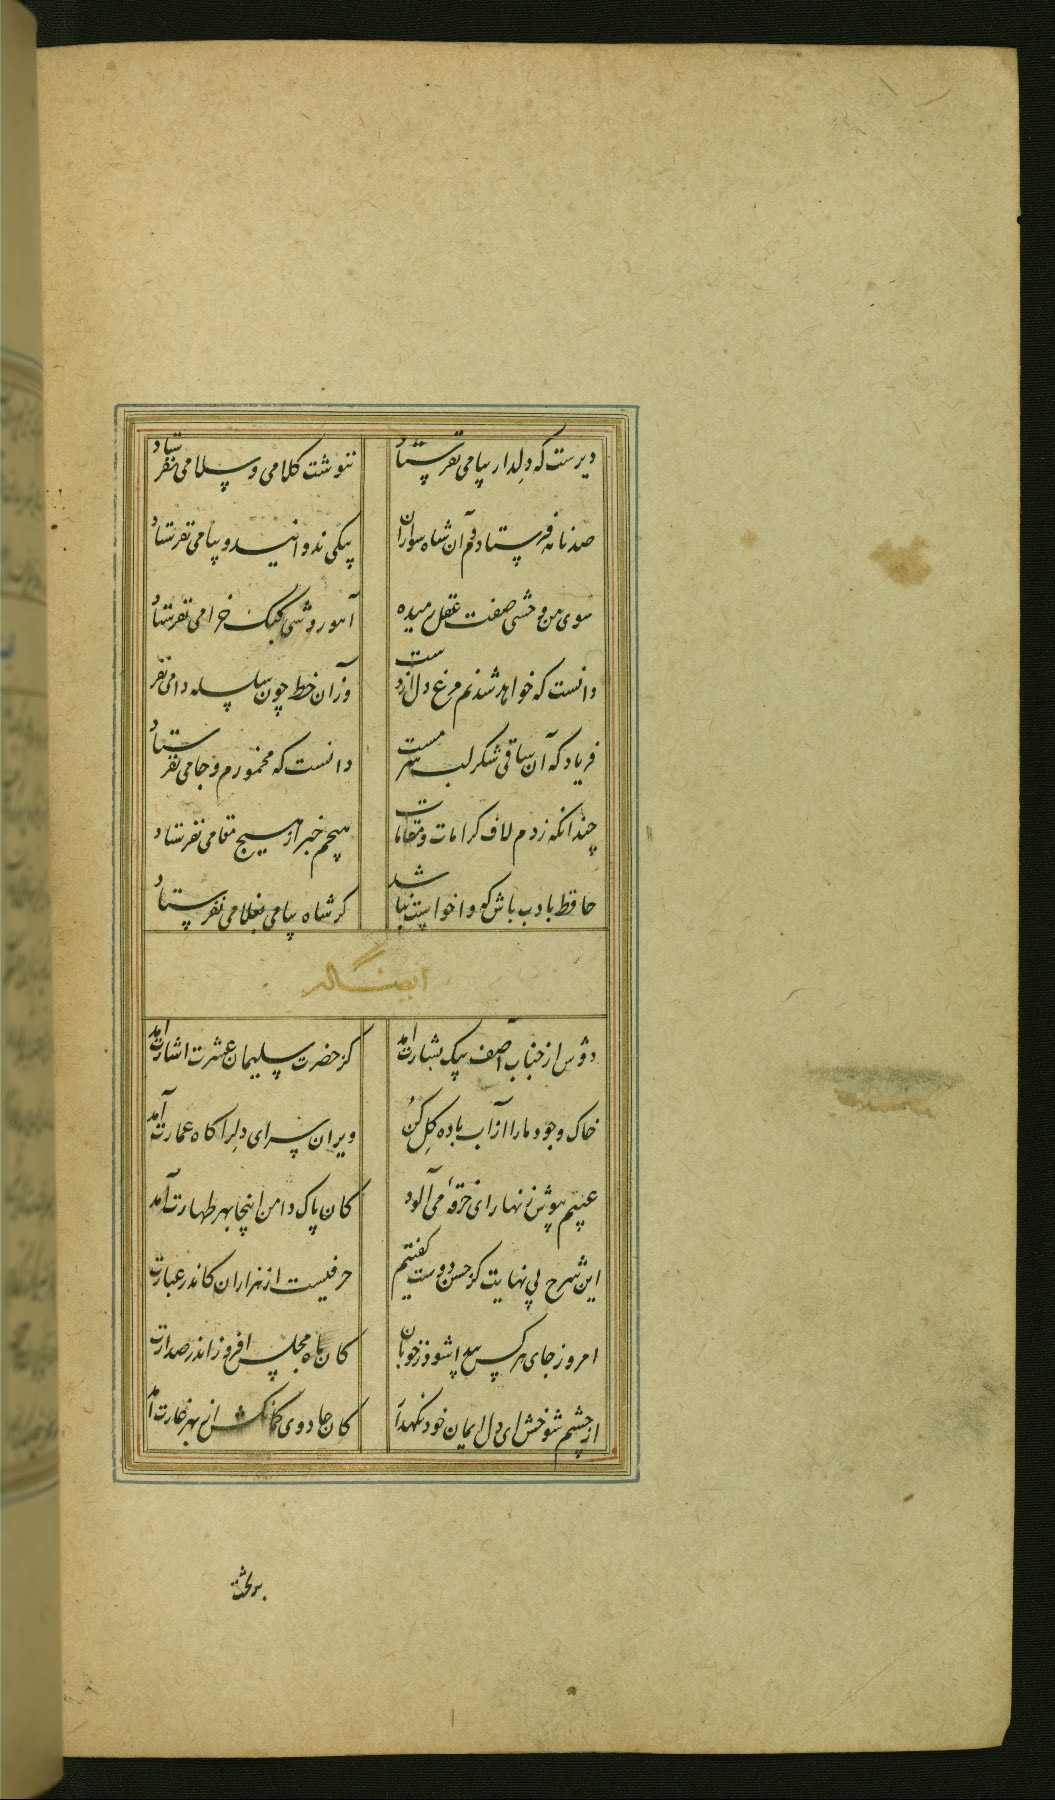 دیرست که دلدار پیامی نفرستاد ننوشت کلامی و سلامی نفرستاد
صد نامه فرستادم و آن شاه سواران پیکی ندوانید و پیامی نفرستاد
سوی من وحشی صفت عقل رمیده آهو روشی کبک خرامی نفرستاد
دانست که خواهد شدنم مرغ دل از دست وزان خط چون سلسله دامی نفر
فریاد که آن ساقی شکر لب سرمست دانست که مخمورم و جامی نفرستاد
چندانکه زدم لاف کرامات و مقامات هیچم خبر از هیچ مقامی نفرستاد
حافظ بادب باش که واخواست نباشد کر شاه پیامی بغلامی نفرستاد
ایضا له
دوش از جناب آصف پیک بشارت آمد کز حضرت سلیمان عشرت اشارت آمد
خاک وجود ما را از آب باده کل کن ویران سرای دل را کاه عمارت آمد
عیبم بپوش زنهار ای خرقهٔ می آلود کان پاک دامن اینجا بهر طهارت آمد
این شرح بی نهایت کز حسن دوست کفتیم حرفیست از هزاران کاندر عبارت
امروز جای هر کس پیدا شود ز خوبان کان ماه مجلس افروز اندر صدارت
از چشم شوخش ای دل ایمان خود نکهدار کان جادوی کمانکش از بهر غارت آمد
بر تخت